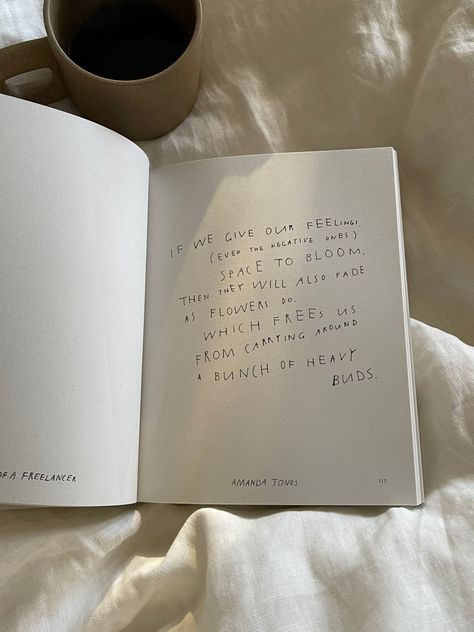 OF A FREELANCER
IF WE GIVE OUR FEELINGS,
(EVEN THE NEGATIVE ONES)
SPACE TO BLOOM,
THEN THEY WILL ALSO FADE
AS FLOWERS DO.
WHICH FREES US
FROM CARRYING AROUND
A BUNCH OF HEAVY
BUDS.
AMANDA JONES
117